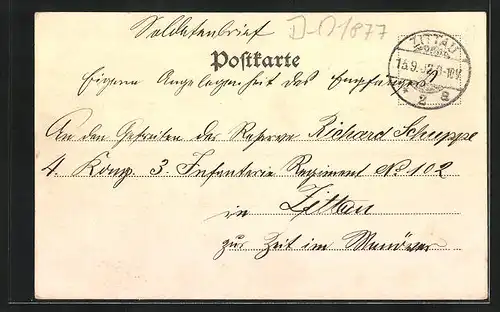 Soldatenbrief D-D1877
Postkarte
ZITTAU
Eigene Angelegenheit des Empfängers
An den Gefreiten der Reserve Richard Schuppe
4. Komp. 3. Infanterie Regiment No 102
in Zittau
zur Zeit im Manöver